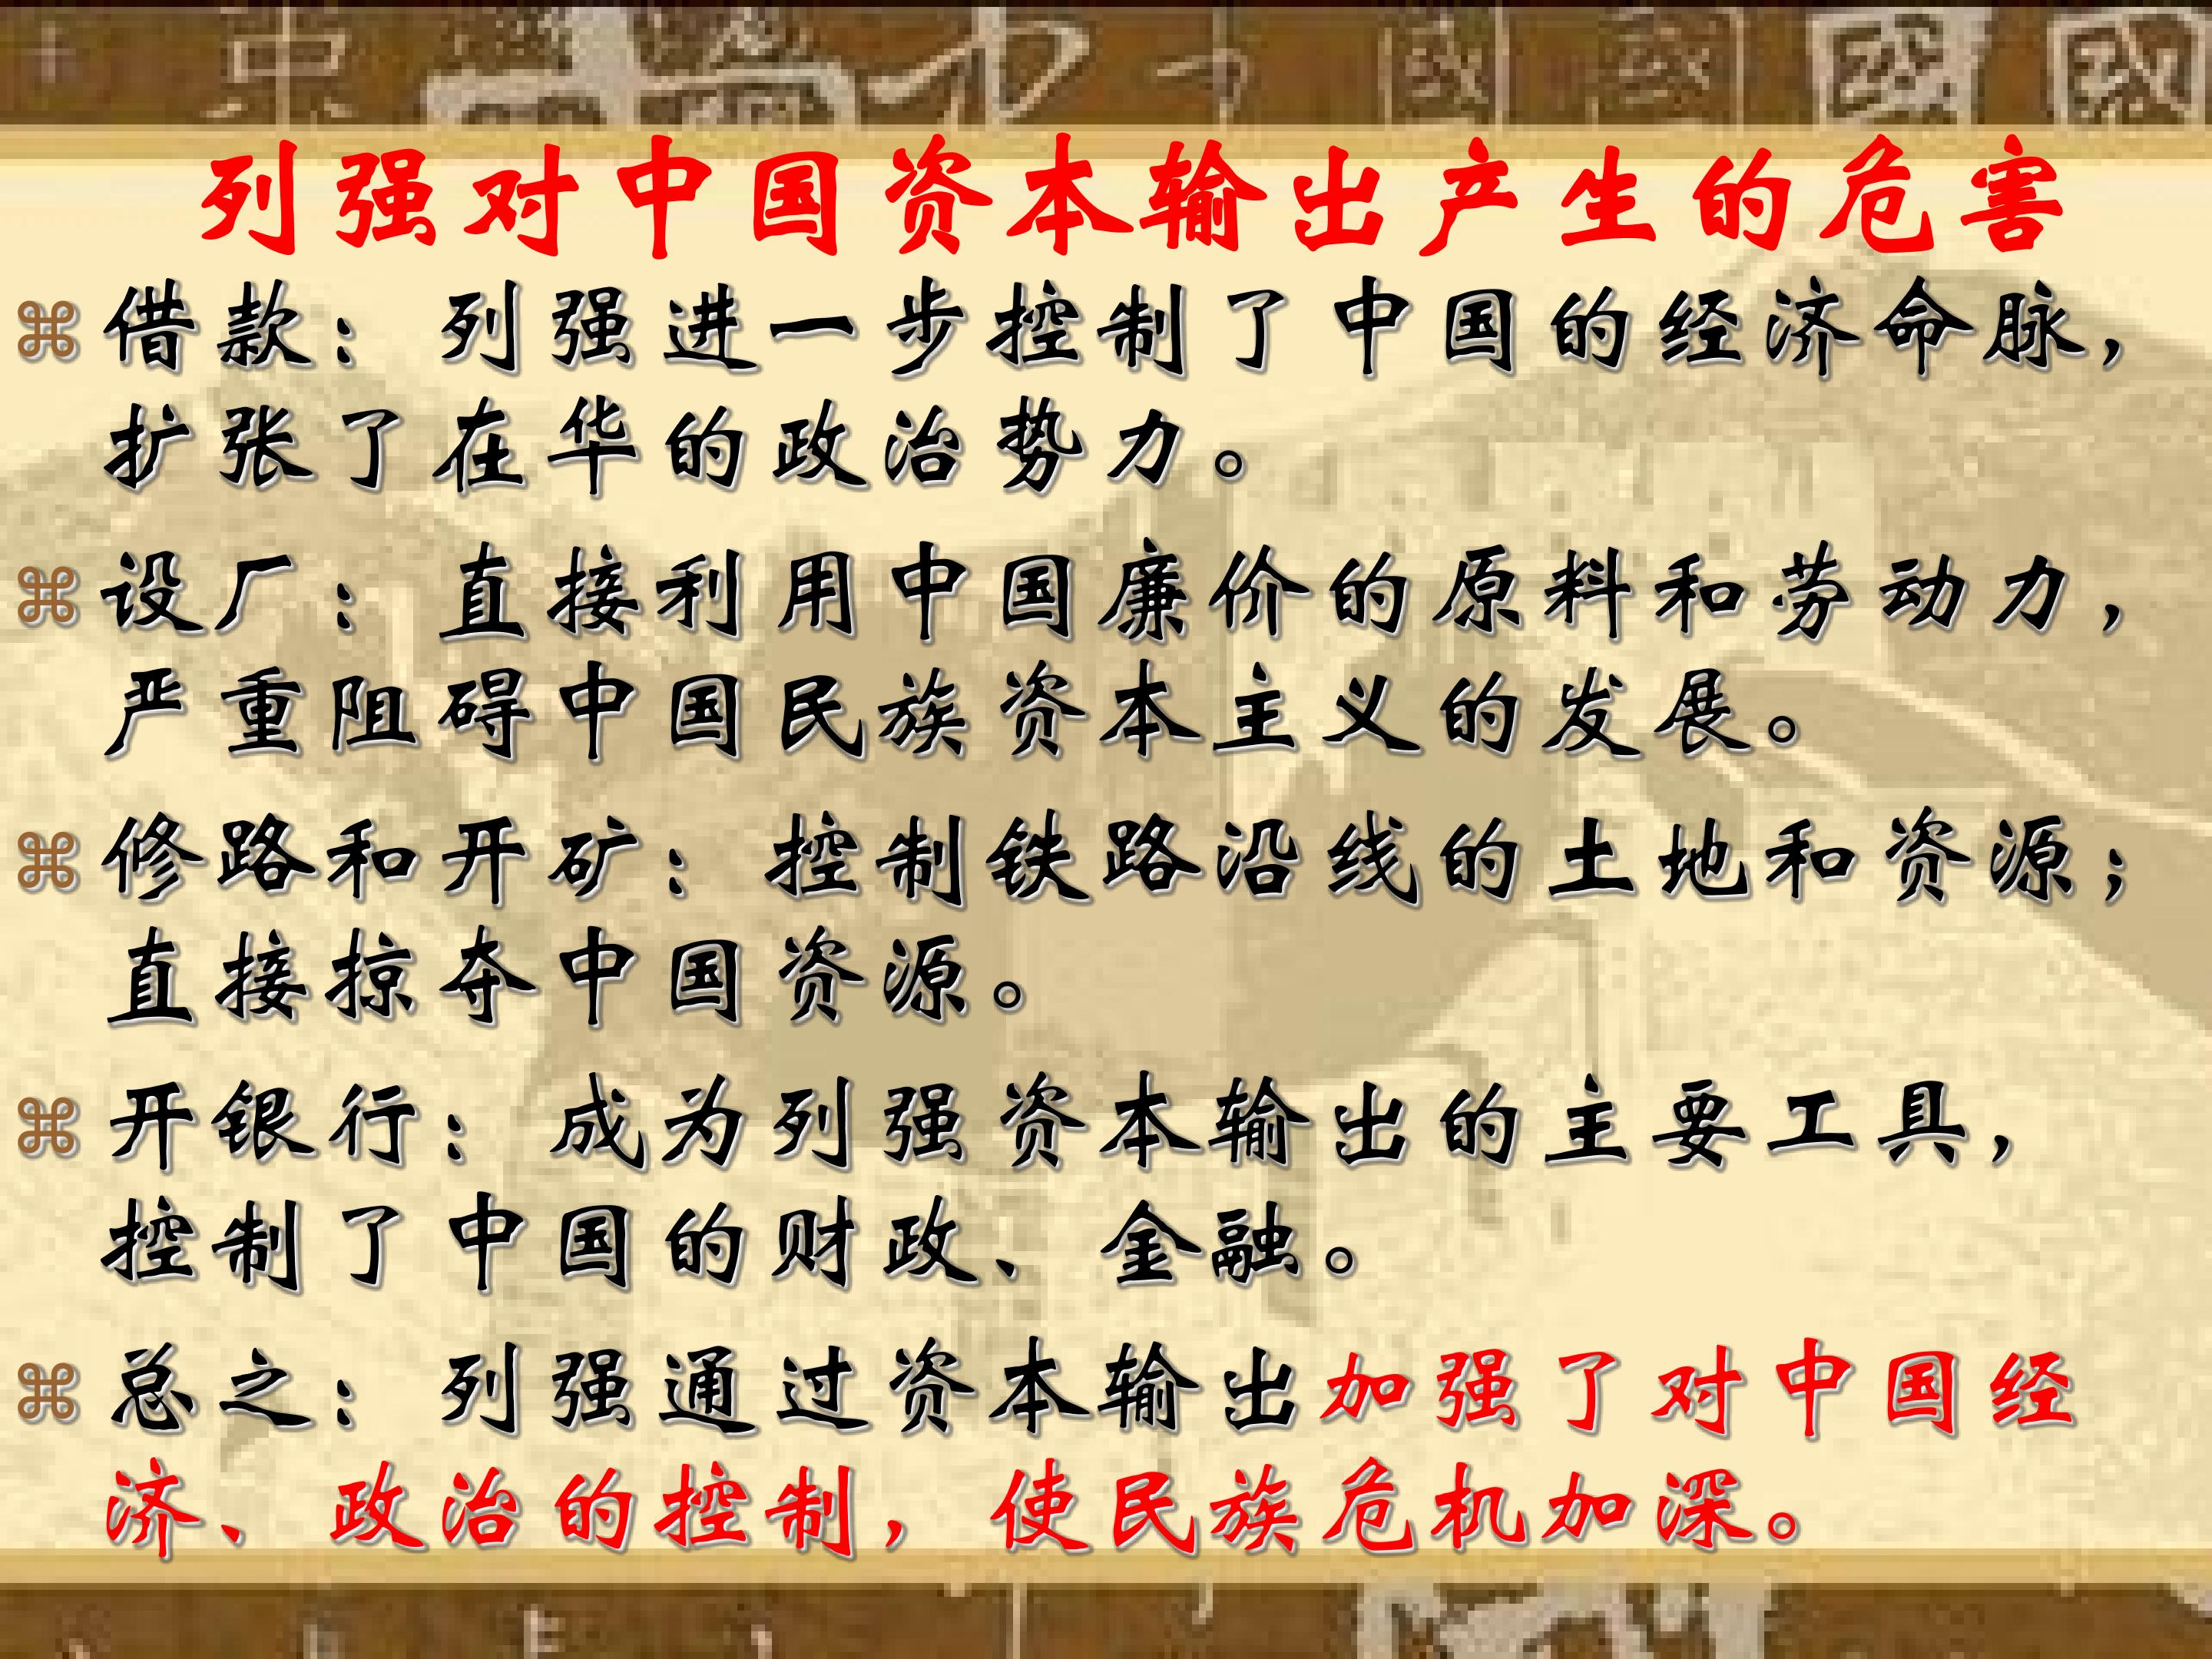 列强对中国资本输出产生的危害
借款：列强进一步控制了中国的经济命脉，
扩张了在华的政治势力。
设厂：直接利用中国廉价的原料和劳动力，
严重阻碍中国民族资本主义的发展。
修路和开矿：控制铁路沿线的土地和资源；
直接掠夺中国资源。
开银行：成为列强资本输出的主要工具，
控制了中国的财政、金融。
总之：列强通过资本输出加强了对中国经
济、政治的控制，使民族危机加深。